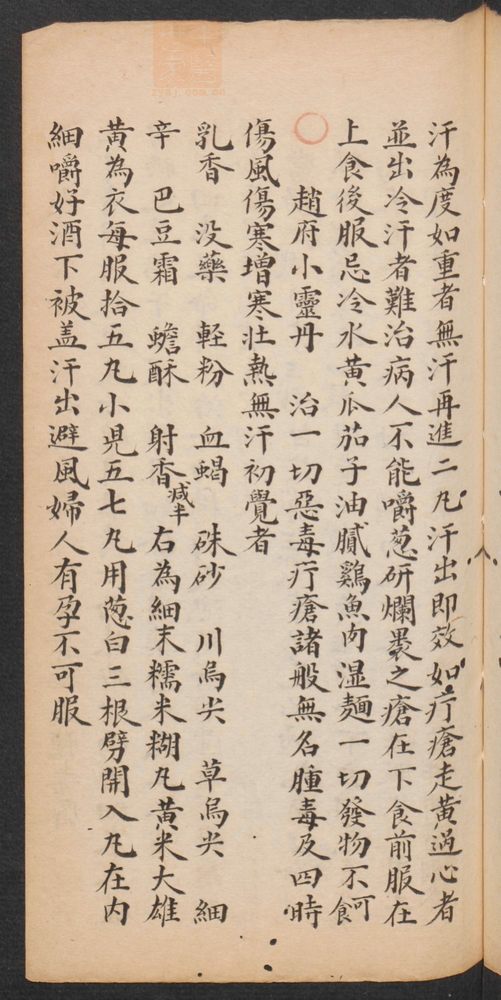 汗為度如重者無汗再進二凡汗出即效如疔瘡走黃過心者
並出冷汗者難治病人不能嚼葱研爛裹之瘡在下食前服在
上食後服忌冷水黃瓜茄子油膩鷄魚肉湿麵一切發物不可食
趙府小靈丹 治一切惡毒疔瘡諸般無名腫毒及四時
傷風傷寒增寒壯熱無汗初覺者
乳香 没藥 軽粉 血蝎 硃砂 川烏尖 草烏尖 細
辛 巴豆霜 蟾酥 射香减半 右為細末糯米糊凡黃米大雄
黃為衣每服拾五凡小児五七凡用葱白三根劈開入凡在内
細嚼好酒下被盖汗出避風婦人有孕不可服